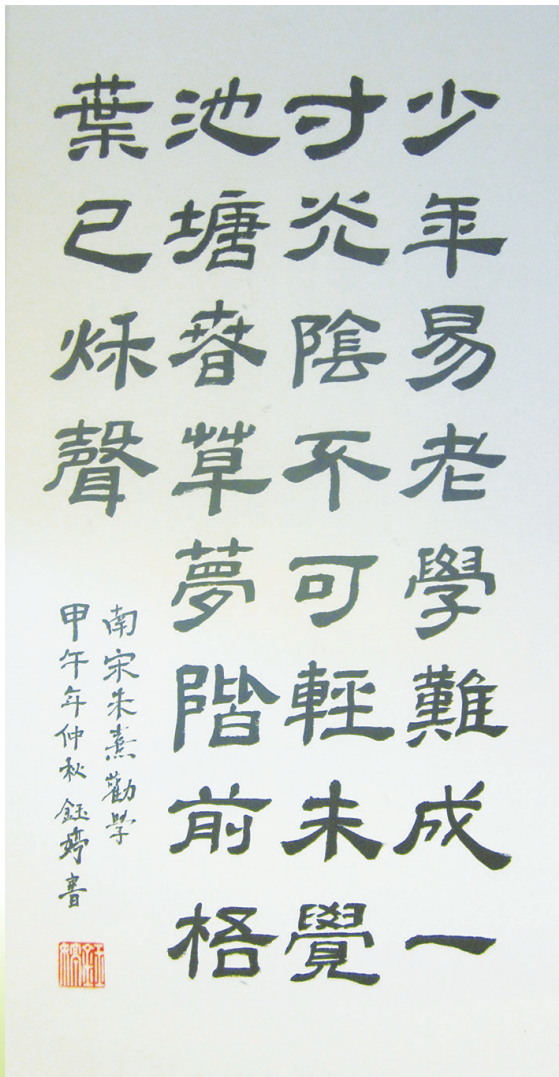 少年易老學難成一
寸光陰不可輕未覺
池塘春草夢階前格
葉已秌聲
南宋朱熹勸學
甲午年仲秋 鈺婷書